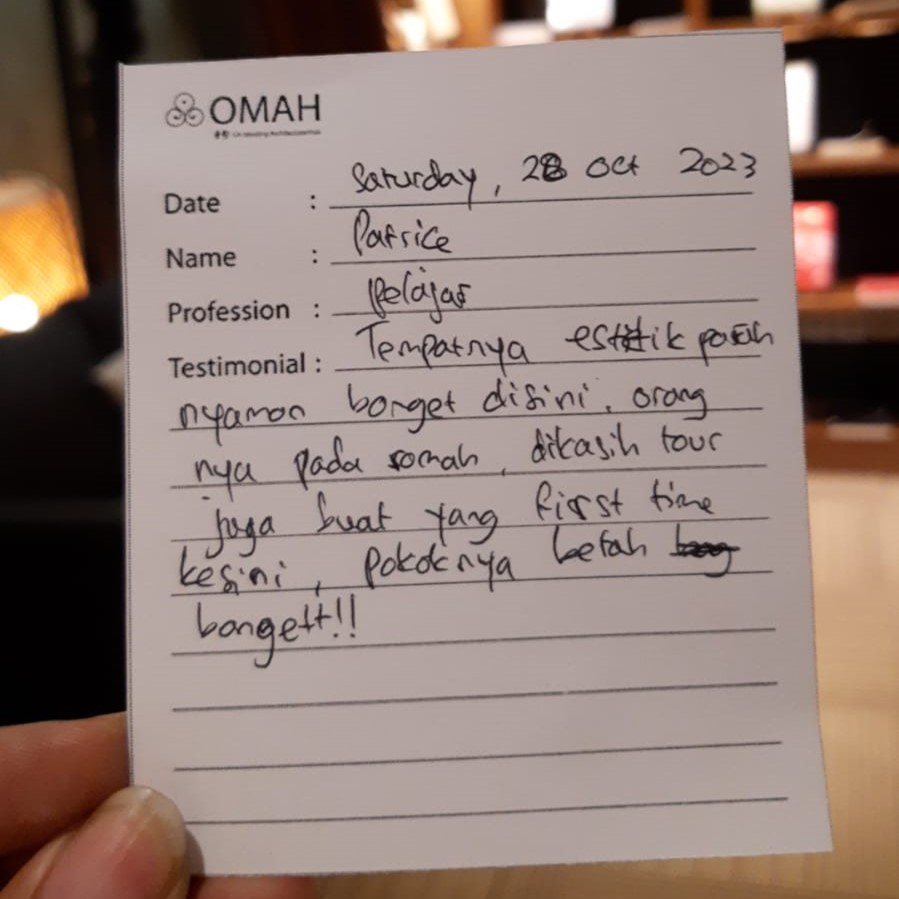 OMAH
Date : Saturday, 28 Oct 2023
Name : Patrice
Profession : Pelajar
Testimonial : Tempatnya estetik parah
nyaman banget disini, orang
nya pada ramah, dikasih tour
juga buat yang first time
kesini, pokoknya betah
bangett!!